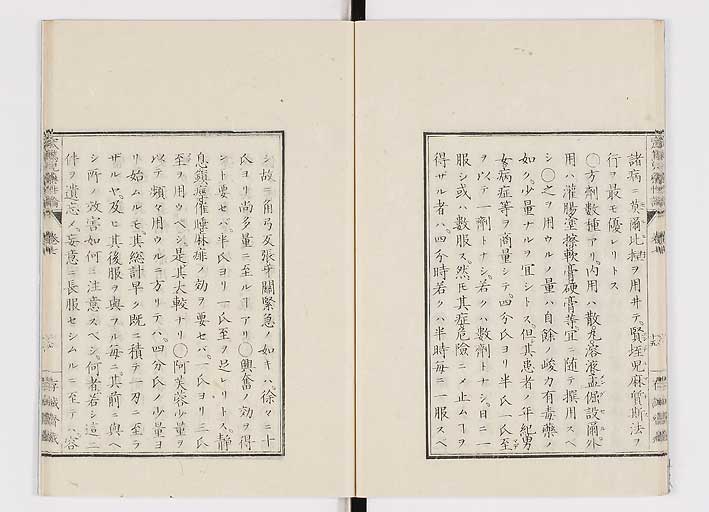 諸病ニ莫爾比涅ヲ用井テ。賢垤児麻質斯法ヲ
行ヲ最モ優レリトス
〇方剤數種アリ。内用ハ散丸溶液舐
用ハ灌腸塗擦軟膏硬膏等宜ニ随テ撰用スベ
シ〇之ヲ用ウルノ量ハ自餘ノ峻力有毒藥ノ
如ク。少量ナルヲ宜シトス。但其患者ノ年紀男
女病症等ヲ商量シテ。四分氏ヨリ半氏一氏至
ヲ以テ一劑トナシ。若クハ數劑トナシ。日ニ一
服シ或ハ數服ス。然𪜈其症危險ニノ止ムヿヲ
得ザル者ハ。四分時若クハ半時毎ニ一服スベ
シ故ニ角弓反張牙關緊急ノ如キハ。徐々ニ十
氏ヨリ尚多量ニ至ルヿアリ〇興奮ノ効ヲ得
ント要セバ。半氏ヨリ一氏至ヲ足レリトス。靜
息鎮痙催睡麻痺ノ効ヲ要セバ。一氏ヨリ三氏
至ヲ用ウベシ。是其大較ナリ〇阿芙蓉少量ヲ
以テ頻々用ウルニ方リテハ。四分氏ノ少量ヨ
リ始ムルモ。其総計早ク既ニ積テ一刃ニ至ラ
ザルヤ。及ヒ其後服ヲ與フル毎ニ。其前ニ與ヘ
シ所ノ効害如何ニ注意スベシ。何者若シ這二
件ヲ遺忘ノ。妄意ニ長服セシムルニ至テハ。容